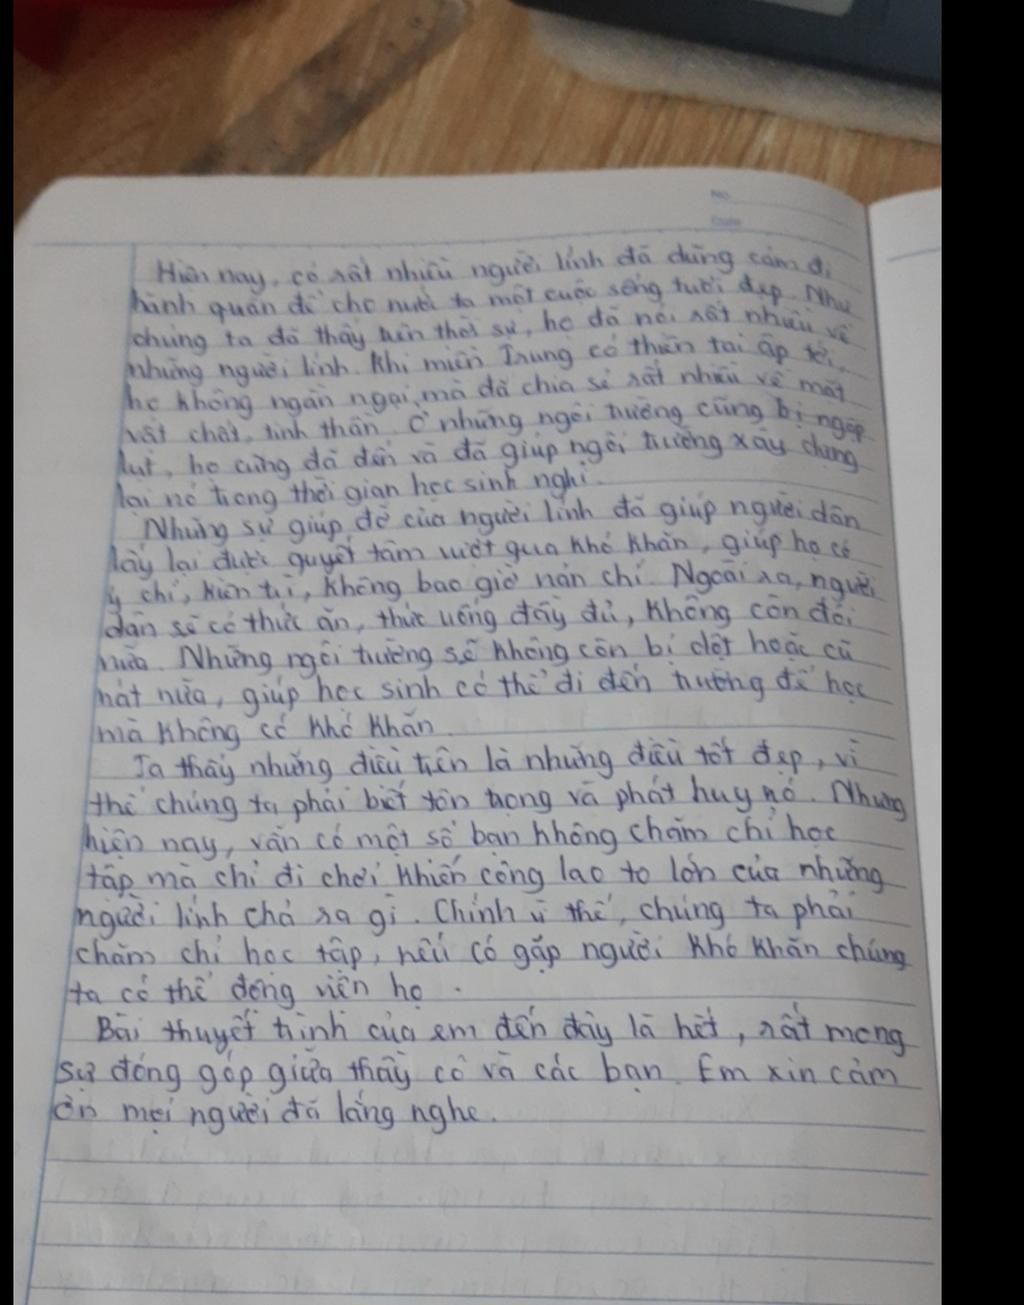 No.
Date
Hiện nay, có rất nhiều người lính đã dũng cảm đi
hành quân để cho nước ta một cuộc sống tươi đẹp. Như
chúng ta đã thấy trên thời sự, họ đã nói rất nhiều về
những người lính. Khi miền Trung có thiên tai ập tới,
họ không ngần ngại, mà đã chia sẻ rất nhiều về mặt
vật chất, tinh thần. Ở những ngôi trường cũng bị ngập
lụt, họ cũng đã đến và đã giúp ngôi trường xây dựng
lại nó trong thời gian học sinh nghỉ.
Những sự giúp đỡ của người lính đã giúp người dân
lấy lại được quyết tâm vượt qua khó khăn, giúp họ có
ý chí, kiên trì, không bao giờ nản chí. Ngoài ra, người
dân sẽ có thức ăn, thức uống đầy đủ, không còn đói
nữa. Những ngôi trường sẽ không còn bị dột hoặc cũ
nát nữa, giúp học sinh có thể đi đến trường để học
mà không có khó khăn.
Ta thấy những điều trên là những điều tốt đẹp, vì
thế chúng ta phải biết tôn trọng và phát huy nó. Nhưng
hiện nay, vẫn có một số bạn không chăm chỉ học
tập mà chỉ đi chơi khiến công lao to lớn của những
người lính chả ra gì. Chính vì thế, chúng ta phải
chăm chỉ học tập, nếu có gặp người khó khăn chúng
ta có thể động viên họ.
Bài thuyết trình của em đến đây là hết, rất mong
sự đóng góp giữa thầy cô và các bạn. Em xin cảm
ơn mọi người đã lắng nghe.